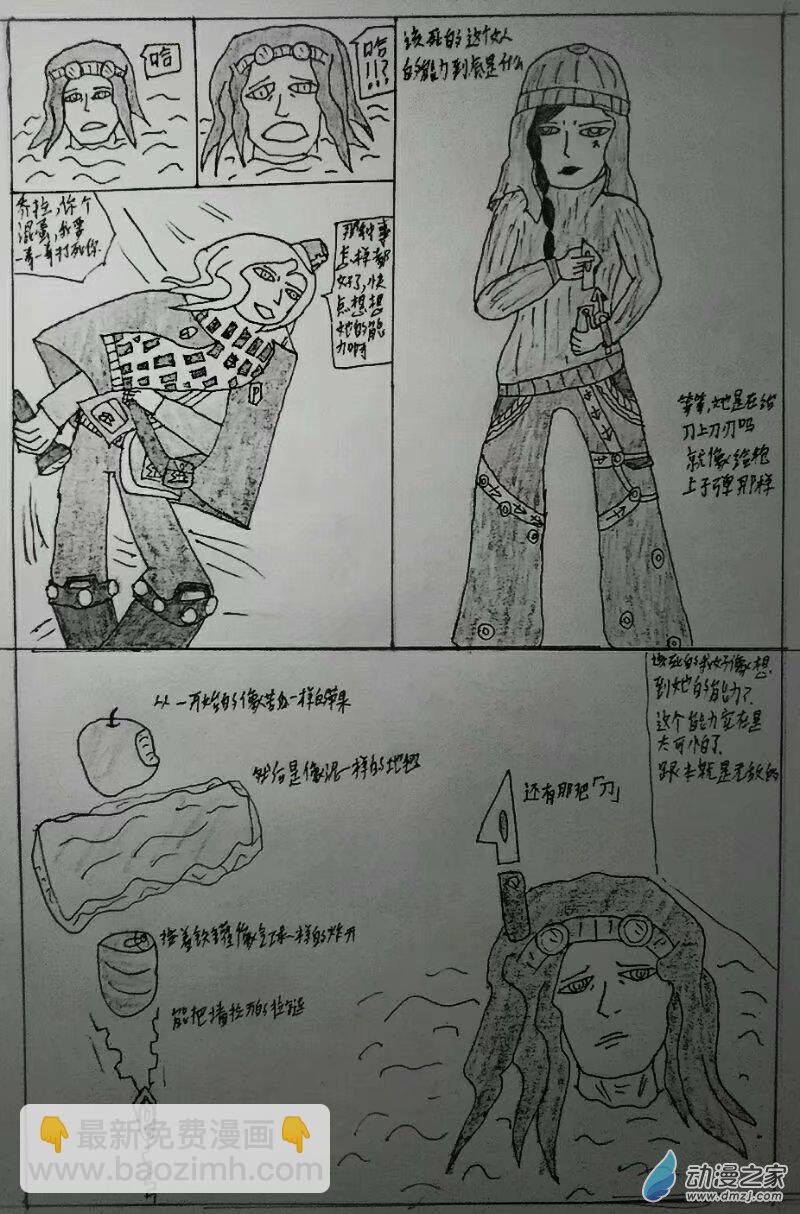 哈
哈
!!?
该死的这个女人
的能力到底是什么
乔拉,你个
混蛋,我要
一哥一哥打死你.
那种事
怎样都
好了,快
点想想
她的能
力啊
等等,她是在给
刀上刀刃吗
就像给枪
上子弹那样
该死的我好像想
到她的能力了.
这个能力实在是
太可怕了.
跟本就是无敌的
从一开始的像苦瓜一样的苹果
然后是像泥一样的地把
还有那把「刀」
接着铁罐像气球一样的炸开
能把墙拉开的拉链
最新免费漫画
www.baozimh.com
动漫之家
www.dmzj.com